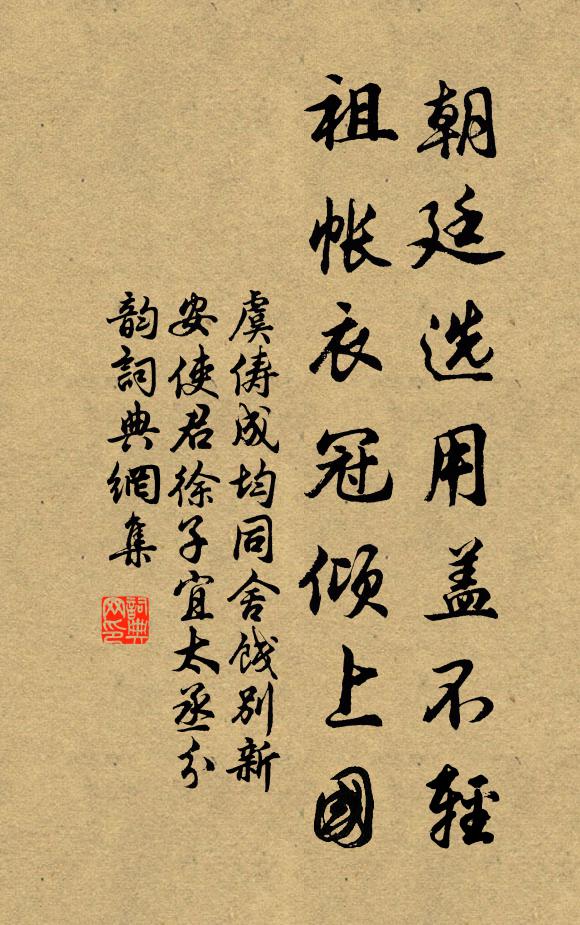 朝廷选用盖不轻
祖帐衣冠倾上國
虞俦成均同舍饯别新
安使君徐子宜太丞分
韵詞典網集
詞典
网印